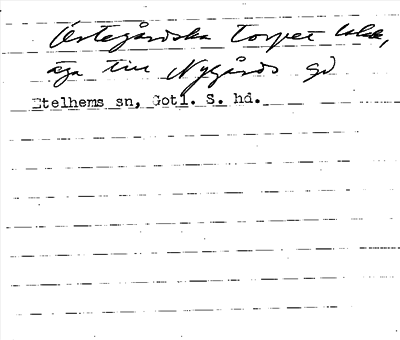 Östegårdska torpet lokal,
äga till Nygårds gd
Etelhems sn, Gotl. S. hd.